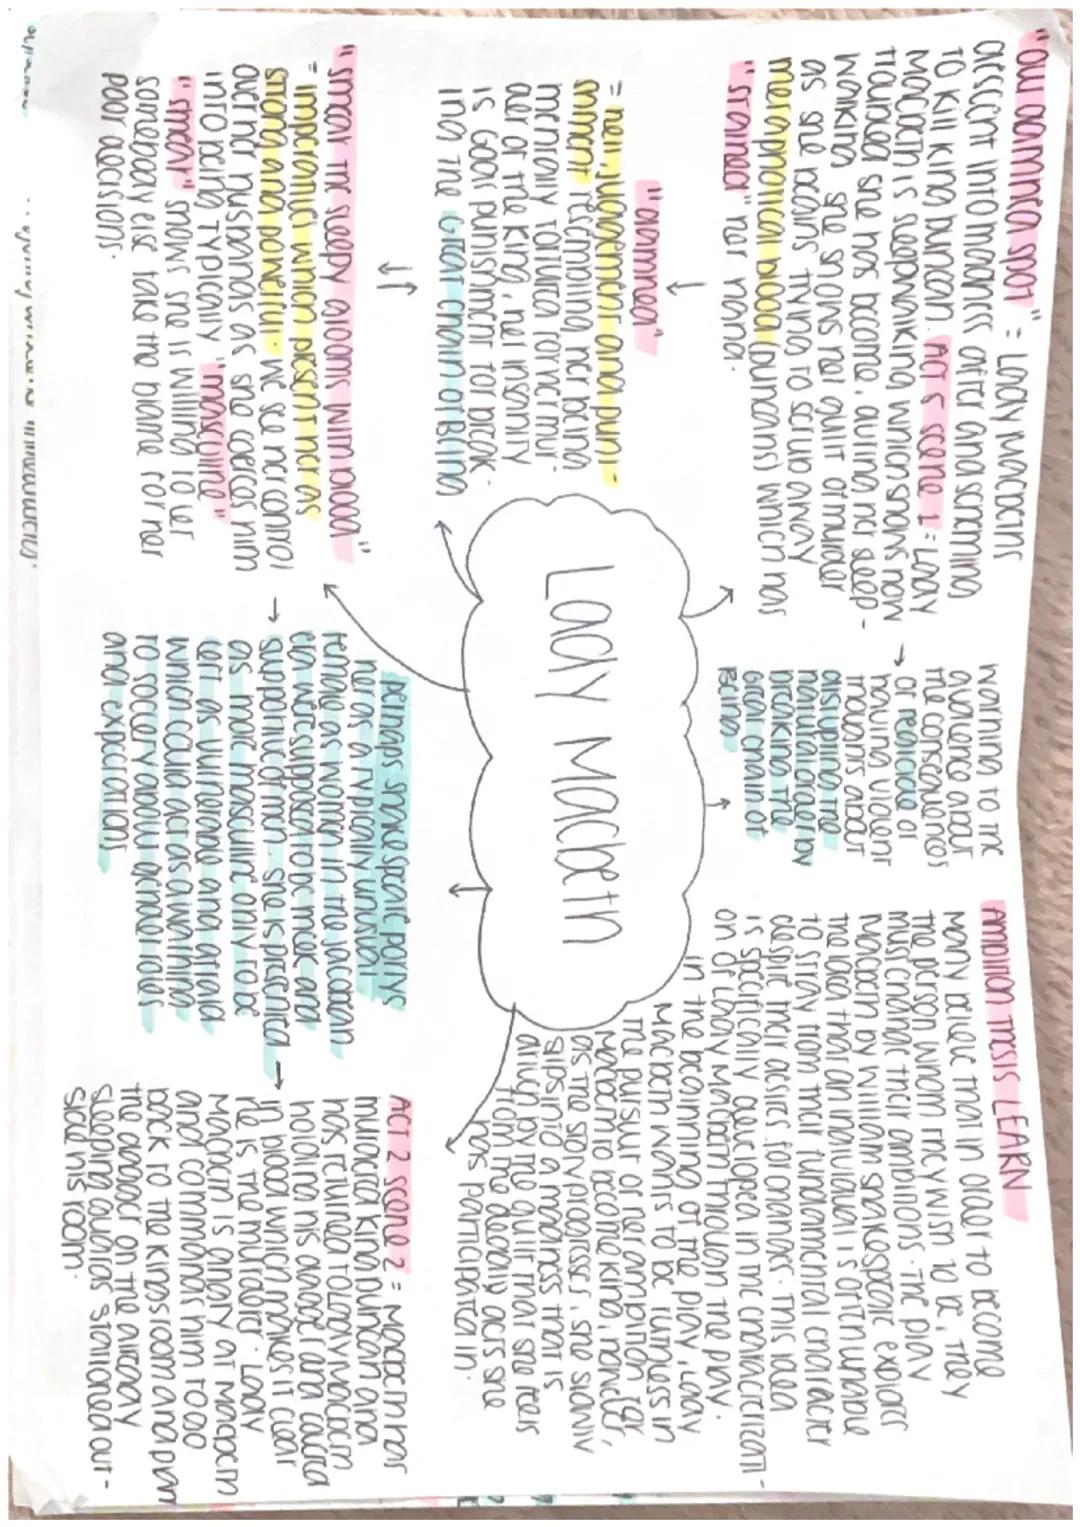 "out damned spot" = Lady Macbeth's
descent into madness after and scheming
to kill king Duncan. Act 5 scene 1 = Lady
Macbeth is sleepwalking which shows how
troubled she has become, during her sleep-
walking she shows her guilt of murder
as she begins trying to scrub away
metaphorical blood (Duncans) which has
"stained" her hand.
"damned"
= hell, judgement and pun-
ishment, resembling her being
mentally tortured for her mur-
der of the king, her insanity
is Gods punishment for break-
ing the Great Chain of Being
"smear the sleepy grooms with blood"
= imperatives which present her as
strong and powerful. We see her control
over her husbands as she coerces him
into being typically "masculine"
"smear" shows she is willing to let
somebody else take the blame for her
poor decisions.
Lady Macbeth
warning to the
audience about
the consequences
of regicide or
having violent
thoughts about
disrupting the
natural order by
breaking the
great chain of
being
perhaps shakespeare portrays
her as a typically unusual
female as women in the jacobean
era were supposed to be meek and
supplicant men - she is presented
as more masculine only to be
left as vulnerable and afraid
which could act as a warning
to society about gender roles
and expectations
Ambition thesis LEARN
Many believe that in order to become
the person whom they wish to be, they
must change their ambitions. The play
Macbeth by William Shakespeare explores
the idea that an individual is often unable
to stray from their fundamental character
despite their desires for change. This idea
is specifically developed in the characterizati-
on of Lady Macbeth through the play.
In the beginning of the play, Lady
Macbeth wants to be ruthless in
the pursuit of her ambition for
Macbeth to become king, however,
as the story progresses, she slowly
slips into a madness that is
driven by the guilt that she feels
from the deadly acts she
has participated in.
Act 2 scene 2 = Macbeth has
murdered king Duncan and
has returned to lady macbeth
holding his dagger and covered
in blood which makes it clear
he is the murderer. Lady
Macbeth is angry at Macbeth
and commands him to go
back to the kings room and plant
the dagger on the already
sleeping guards stationed out-
side his room.